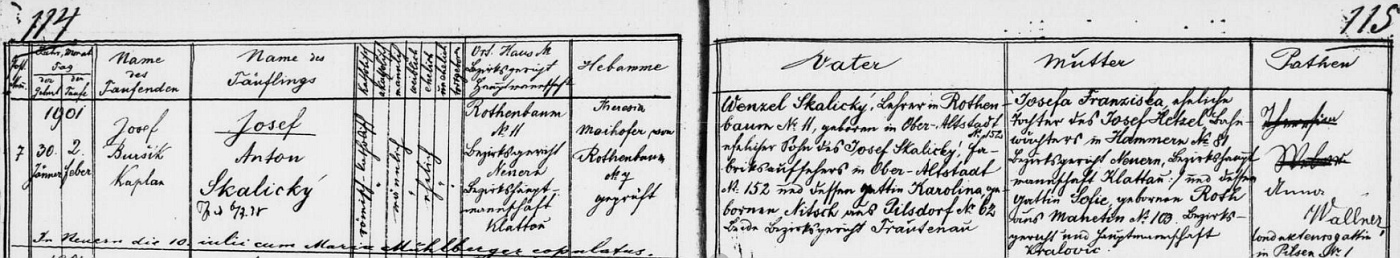 114
115
Jahr, Monat
Tag
der Geburt
der Taufe
Name
des
Taufenden
Name des
Täuflings
katholisch
männlich
weiblich
ehelich
unehelich
Ort, Haus №
Bezirksgericht
Hauptmannschaft
Hebamme
Vater
Mutter
Pathen
1901
7
30.
Jänner
2.
Feber
Josef
Bursik
Kaplan
Josef
Anton
Skalický
römisch-katholisch
männlich
ehelich
Rothenbaum
№ 11
Bezirksgericht
Neuern
Bezirkshaupt-
mannschaft
Klattau
Theresia
Maihofer von
Rothenbaum
№ 7
geprüft
Wenzel Skalický, Lehrer in Rothen
baum № 11, geboren in Ober-Altstadt
№ 152
ehelicher Sohn des Josef Skalický, Fa-
briksaufsehers in Ober-Altstadt
№ 152 und dessen Gattin Karolina, ge
bornen Nitsch aus Pilsdorf № 62
beide Bezirksgericht Trautenau
Josefa Franziska, eheliche
Tochter des Josef Hetzel Bahn-
wächters in Hammern № 81
Bezirksgericht Neuern, Bezirkshaupt
mannschaft Klattau und dessen
Gattin Sofie, gebornen Roth
aus Manetin № 103 Bezirks-
gericht und Hauptmannschaft
Kralovic.
Theresia
Weber
Anna
Wallner
Condukteursgattin
in Pilsen № 1
In Neuern die 10. iulii cum Maria Mühlberger copulatus.